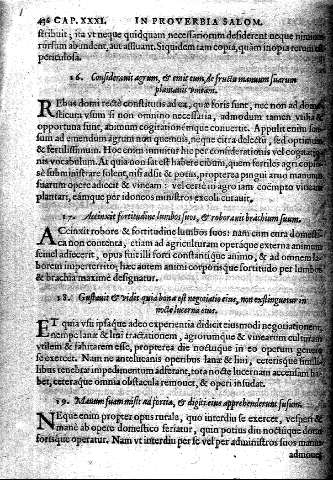 436 CAP. XXXI. IN PROVERBIA SALOM.
stribuit; ita vt neque quidquam necessariorum desiderent neque nimium
rursum abundent, aut affluant. Siquidem tam copia, quàm inopia rerum est
periculosa.
16. Considerauit agrum, & emit eum, de fructu manuum suarum
plantauit vineam.
REbus domi rectè constitutis ad ea, quæ foris sunt, nec non ad dome-
stica vsum si non omnino necessaria, admodum tamen vtilia &
opportuna sunt, animum cogitationemque conuertit. Appulit enim
ad emendum agrum non quemuis, neque citra delectũ, sed optimum
& fertilissimum. Hoc enim innuitur hic per considerationis vel cogitationis
nis vocabulum. At quia non sat est habere cibum, quem fertiles agri copio-
sè subministrare solent, nisi adsit & potus, propterea pingui aruo manuum
suarum opere adiecit & vineam: vel certè in agro iam coëmpto vineam
plantari, eamque per idoneos ministros excoli curauit.
17. Accinxit fortitudine lumbos suos, & roborauit brachium suum.
ACcinxit robore & fortitudine lumbos suos: nam cum cura domesti-
ca non contenta, etiam ad agriculturam operáque externa animum
adiecerit, opus fuit illi forti constantique animo, & ad omnem la-
borem imperterrito; hæc autem animi corporisque fortitudo per lumbos
& brachia maximè designatur.
18. Gustauit & vidit quia bona est negotiatio eius, non exstinguetur in
nocte lucerna eius.
ET quia vsu ipsaque adeo experientia didicit eiusmodi negotiationem,
nempe lanæ & lini tractationem, agrorumque & vinearum culturam
vtilem & salutarem esse, propterea die noctuque in eo operum genere
se exercet. Nam ne antelucanis operibus lanæ & lini, ceterisque similibus
tenebræ impedimentum adferant, tota nocte lucernam accensam ha-
bet, ceteraque omnia obstacula remouet, & operi insudat.
19. Manum suam misit ad fortia, & digiti eius apprehenderunt fusum.
NEque enim propter opus rurale, quo interdiu se exercet, vesperi &
manè ab opere domestico feriatur, quin potius diu noctuque domi
forisque operatur. Nam vt interdiu per se vel per administros suos manum
admouet